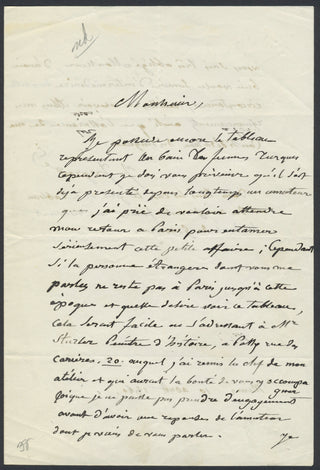 Monsieur,
Je possede encore le tableau
representant un bain de femmes turques
cependant je dois vous prévenir qu'il s'est
déjà presenté depuis longtemps un amateur
que j'ai prié de vouloir attendre
mon retour a Paris pour entamer
serieusement cette petite affaire; Cependant
Si la personne étrangere dont vous me
parlez ne reste pas à Paris jusqu'à cette
époque et qu'elle désire voir ce tableau,
cela serait facile en s'adressant à Mr
Sturler Peintre d'histoire, a rue des
Carrières, 20. auquel j'ai remis la clef de mon
atelier et qui aurait la bonté de vous y accompa
gner
quoique je ne puisse pas prendre d'engagement
avant d'avoir une reponse de l'amateur
dont je viens de vous parler.
Je